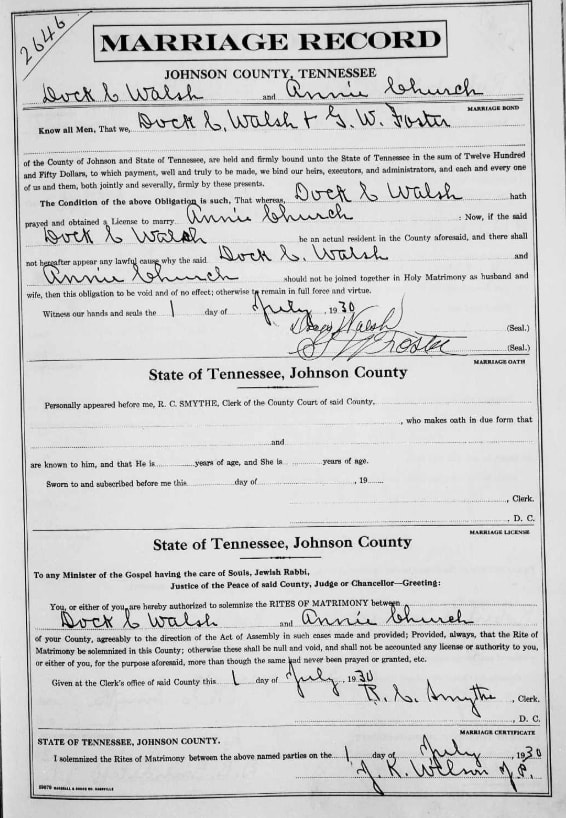 2646
MARRIAGE RECORD
JOHNSON COUNTY, TENNESSEE
Dock C Walsh and Annie Church
MARRIAGE BOND
Know all Men, That we, Dock C. Walsh & G. W. Foster
of the County of Johnson and State of Tennessee, are held and firmly bound unto the State of Tennessee in the sum of Twelve Hundred
and Fifty Dollars, to which payment, well and truly to be made, we bind our heirs, executors, and administrators, and each and every one
of us and them, both jointly and severally, firmly by these presents.
The Condition of the above Obligation is such, That whereas, Dock C Walsh hath
prayed and obtained a License to marry Annie Church : Now, if the said
Dock C Walsh be an actual resident in the County aforesaid, and there shall
not hereafter appear any lawful cause why the said Dock C. Walsh and
Annie Church should not be joined together in Holy Matrimony as husband and
wife, then this obligation to be void and of no effect; otherwise to remain in full force and virtue.
Witness our hands and seals the 1 day of July , 1930
Walsh (Seal.)
Foster (Seal.)
MARRIAGE OATH
State of Tennessee, Johnson County
Personally appeared before me, R. C. SMYTHE, Clerk of the County Court of said County,
, who makes oath in due form that
and
are known to him, and that He is years of age, and She is years of age.
Sworn to and subscribed before me this day of , 19
, Clerk.
, D. C.
MARRIAGE LICENSE
State of Tennessee, Johnson County
To any Minister of the Gospel having the care of Souls, Jewish Rabbi,
Justice of the Peace of said County, Judge or Chancellor—Greeting:
You, or either of you, are hereby authorized to solemnize the RITES OF MATRIMONY between
Dock C Walsh and Annie Church
of your County, agreeably to the direction of the Act of Assembly in such cases made and provided; Provided, always, that the Rite of
Matrimony be solemnized in this County; otherwise these shall be null and void, and shall not be accounted any license or authority to you,
or either of you, for the purpose aforesaid, more than though the same had never been prayed or granted, etc.
Given at the Clerk's office of said County this 1 day of July , 1930
R. C. Smythe , Clerk.
, D. C.
MARRIAGE CERTIFICATE
STATE OF TENNESSEE, JOHNSON COUNTY.
I solemnized the Rites of Matrimony between the above named parties on the 1 day of July , 1930
J. K. Wilson J. P.